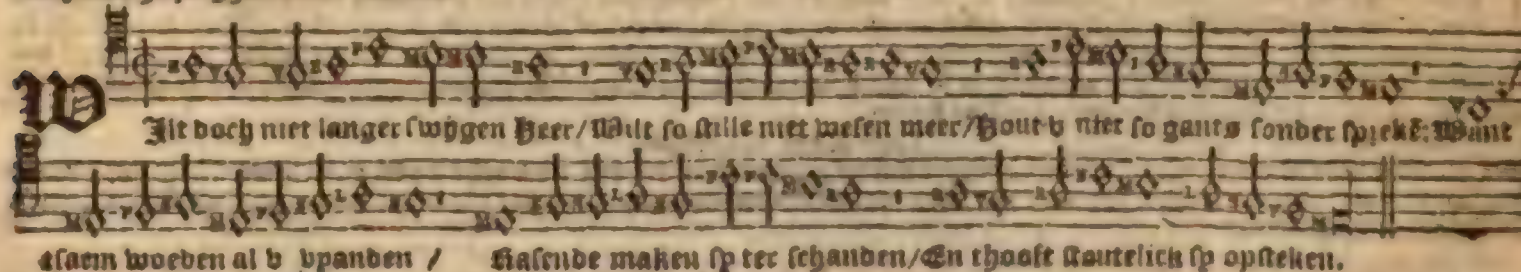 WIlt doch niet langer swygen Heer/Wilt so stille niet wesen meer/Hout v niet so gants sonder sprekē: Want
tsaem woeden al v vyanden / Rasende maken sy ter schanden/En thooft stoutelick sy opsteken.